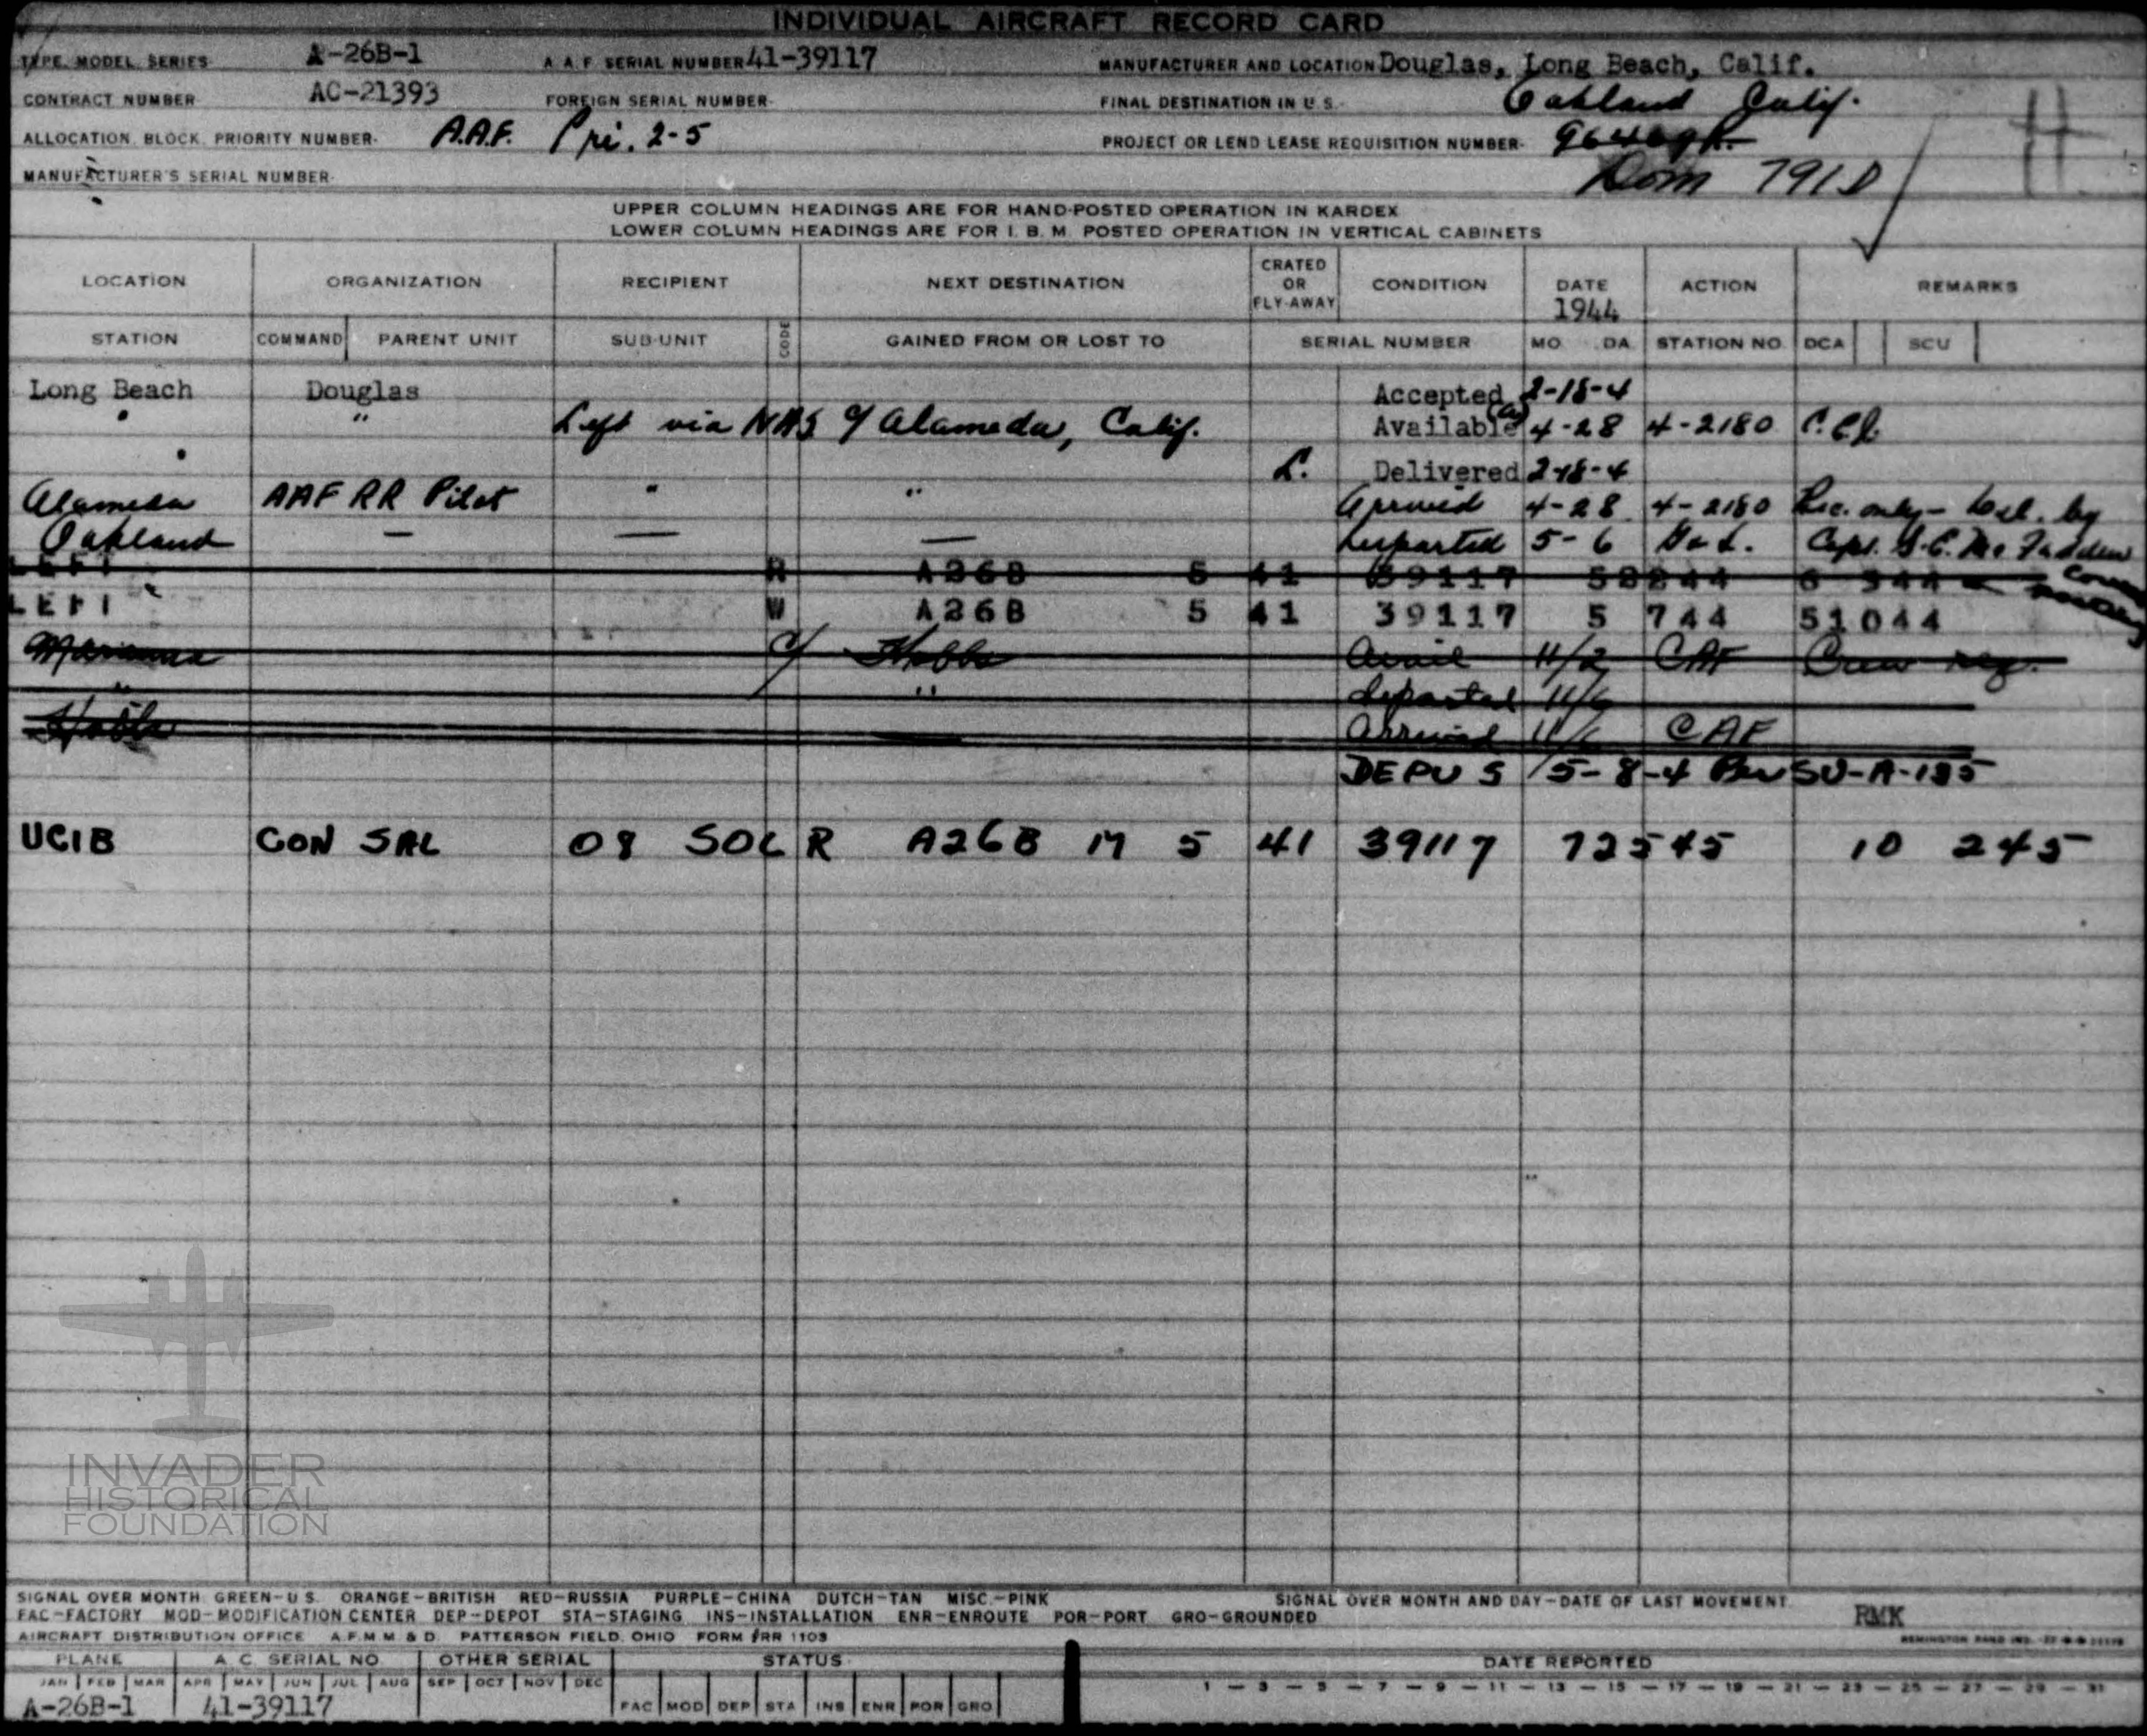 INDIVIDUAL AIRCRAFT RECORD CARD
TYPE, MODEL, SERIES A-26B-1 A.A.F. SERIAL NUMBER 41-39117 MANUFACTURER AND LOCATION Douglas, Long Beach, Calif.
CONTRACT NUMBER AC-21393 FOREIGN SERIAL NUMBER- FINAL DESTINATION IN U.S.- Oakland Calif.
ALLOCATION, BLOCK, PRIORITY NUMBER- A.A.F. Pri. 2-5 PROJECT OR LEND LEASE REQUISITION NUMBER-
MANUFACTURER'S SERIAL NUMBER- Dom 791D
UPPER COLUMN HEADINGS ARE FOR HAND-POSTED OPERATION IN KARDEX
LOWER COLUMN HEADINGS ARE FOR I. B. M. POSTED OPERATION IN VERTICAL CABINETS
LOCATION ORGANIZATION RECIPIENT NEXT DESTINATION CRATED OR FLY-AWAY CONDITION DATE 1944 ACTION REMARKS
STATION COMMAND PARENT UNIT SUB-UNIT CODE GAINED FROM OR LOST TO SERIAL NUMBER MO. DA. STATION NO. DCA SCU
Long Beach Douglas Accepted 2-18-4
" " Left via NAS c/ Alameda, Calif. Available 4-28 4-2180
" L. Delivered 2-18-4
Alameda AAF RR Pilot " " Arrived 4-28 4-2180 Rec. only - by
Oakland — — — Departed 5-6 Capt. McFadden
LEFT R A26B 5 41 39117
LEFT W A26B 5 41 39117 5 744 51044
Marianna c/ Hobbs Avail 11/2 CAF Crew
" " departed 11/6
Hobbs — Arrived 11/6 CAF
DEPUS 5-8-4 Per SU-A-185
UCIB CON SAL 08 SOC R A26B M 5 41 39117 72545 10 245
INVADER
HISTORICAL
FOUNDATION
SIGNAL OVER MONTH GREEN-U.S. ORANGE-BRITISH RED-RUSSIA PURPLE-CHINA DUTCH-TAN MISC.-PINK SIGNAL OVER MONTH AND DAY-DATE OF LAST MOVEMENT
FAC-FACTORY MOD-MODIFICATION CENTER DEP-DEPOT STA-STAGING INS-INSTALLATION ENR-ENROUTE POR-PORT GRO-GROUNDED RMK
AIRCRAFT DISTRIBUTION OFFICE A.F.M.M & D. PATTERSON FIELD, OHIO FORM #RR 1103
PLANE A.C. SERIAL NO. OTHER SERIAL STATUS DATE REPORTED
JAN FEB MAR APR MAY JUN JUL AUG SEP OCT NOV DEC 1 - 3 - 5 - 7 - 9 - 11 - 13 - 15 - 17 - 19 - 21 - 23 - 25 - 27 - 29 - 31
A-26B-1 41-39117 FAC MOD DEP STA INS ENR POR GRO